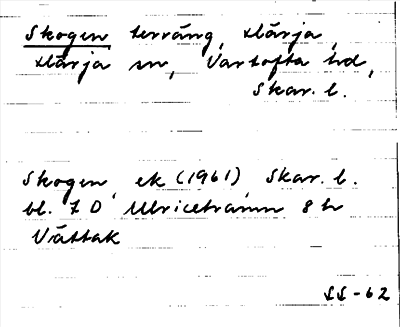 Skogen, terräng, Hårja,
Hårja sn, Vartofta hd,
Skar. l.
Skogen, ek (1961) Skar. l.
bl. 7 D Ulricehamn 8 h
Vättak
SS-62